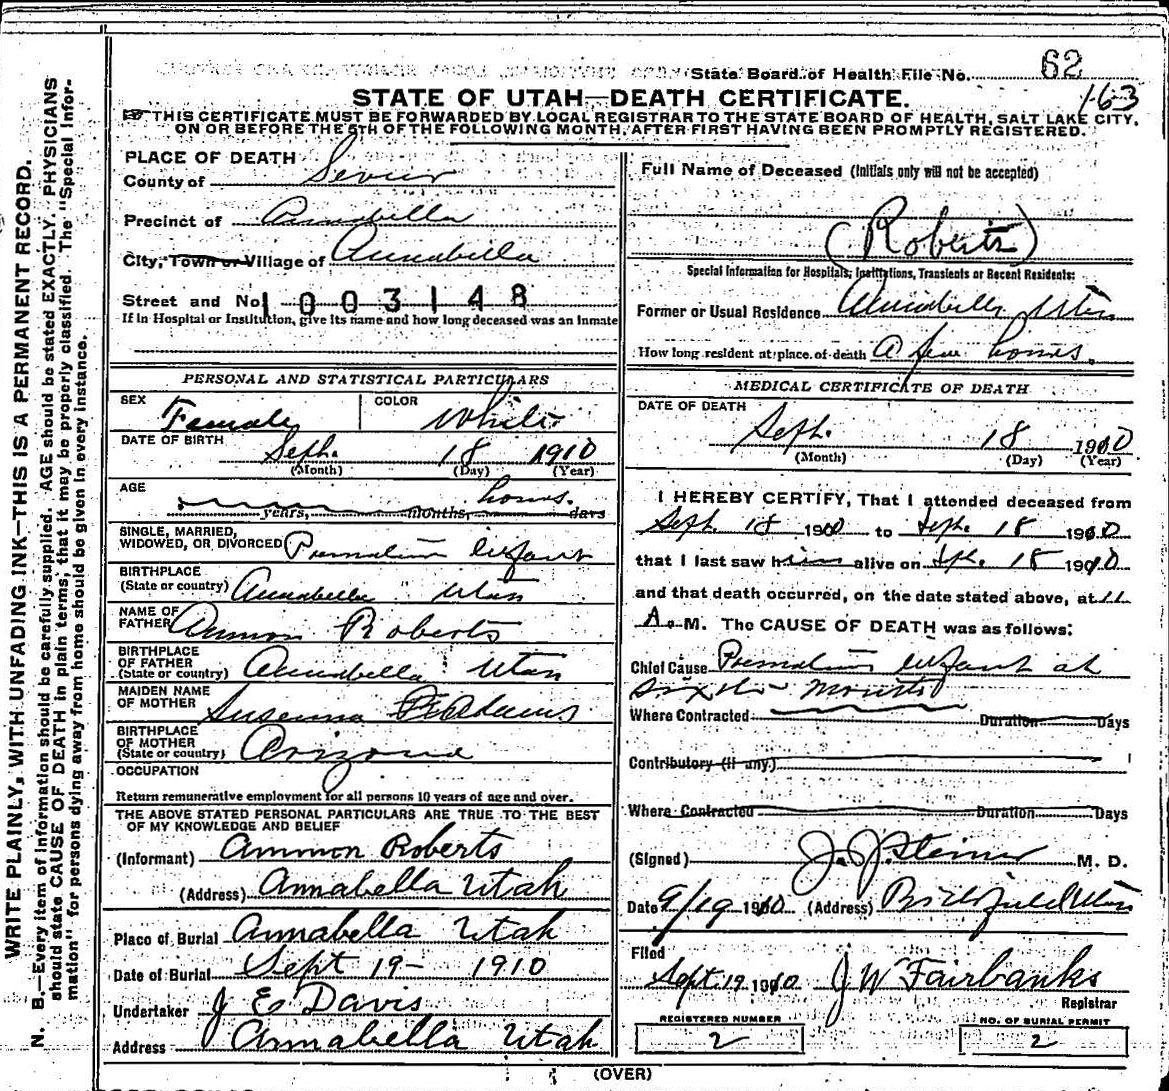 State Board of Health File No. 62
163
STATE OF UTAH—DEATH CERTIFICATE.
THIS CERTIFICATE MUST BE FORWARDED BY LOCAL REGISTRAR TO THE STATE BOARD OF HEALTH, SALT LAKE CITY,
ON OR BEFORE THE 5TH OF THE FOLLOWING MONTH, AFTER FIRST HAVING BEEN PROMPTLY REGISTERED.
WRITE PLAINLY, WITH UNFADING INK—THIS IS A PERMANENT RECORD.
N. B.—Every item of information should be carefully supplied. AGE should be stated EXACTLY. PHYSICIANS
should state CAUSE OF DEATH in plain terms, that it may be properly classified. The "Special Infor-
mation" for persons dying away from home should be given in every instance.
PLACE OF DEATH
County of Sevier
Precinct of Annabella
City, Town or Village of Annabella
Street and No. 1003148
If in Hospital or Institution, give its name and how long deceased was an inmate
PERSONAL AND STATISTICAL PARTICULARS
SEX Female COLOR White
DATE OF BIRTH Sept. 18 1910
(Month) (Day) (Year)
AGE hours.
years, months, days
SINGLE, MARRIED,
WIDOWED, OR DIVORCED Premature infant
BIRTHPLACE
(State or country) Annabella Utah
NAME OF
FATHER Ammon Roberts
BIRTHPLACE
OF FATHER
(State or country) Annabella Utah
MAIDEN NAME
OF MOTHER Susenna Adams
BIRTHPLACE
OF MOTHER
(State or country) Arizona
OCCUPATION
Return remunerative employment for all persons 10 years of age and over.
THE ABOVE STATED PERSONAL PARTICULARS ARE TRUE TO THE BEST
OF MY KNOWLEDGE AND BELIEF
(Informant) Ammon Roberts
(Address) Annabella Utah
Place of Burial Annabella Utah
Date of Burial Sept 19- 1910
Undertaker J E Davis
Address Annabella Utah
Full Name of Deceased (Initials only will not be accepted)
(Roberts)
Special Information for Hospitals, Institutions, Transients or Recent Residents:
Former or Usual Residence Annabella Utah
How long resident at place of death A few hours.
MEDICAL CERTIFICATE OF DEATH
DATE OF DEATH
Sept. 18 1910
(Month) (Day) (Year)
I HEREBY CERTIFY, That I attended deceased from
Sept. 18 1910 to Sept. 18 1910
that I last saw him alive on Spt. 18 1910
and that death occurred, on the date stated above, at 11
A. M. The CAUSE OF DEATH was as follows:
Chief Cause Premature infant at
sixth month
Where Contracted Duration Days
Contributory (if any)
Where Contracted Duration Days
(Signed) J. J. Steiner M. D.
Date 9/19 1910 (Address) Richfield Utah
Filed
Sept. 19 1910 J W Fairbanks
Registrar
REGISTERED NUMBER
2
NO. OF BURIAL PERMIT
2
(OVER)